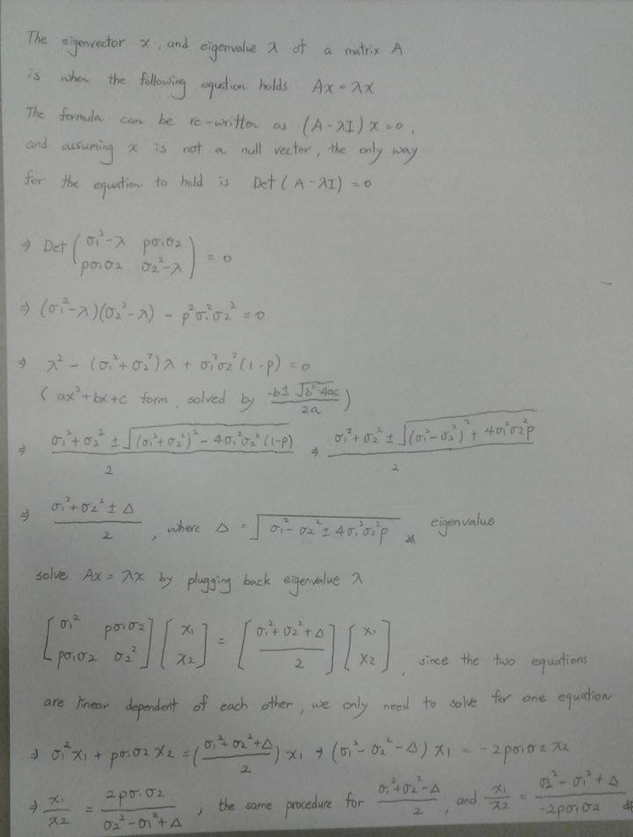 The eigenvector x, and eigenvalue λ of a matrix A
is when the following equation holds Ax = λx
The formula can be re-written as (A-λI) x = 0,
and assuming x is not a null vector, the only way
for the equation to hold is Det(A-λI) = 0
⇒ Det ( σ₁²-λ  ρσ₁σ₂
ρσ₁σ₂  σ₂²-λ ) = 0
⇒ (σ₁²-λ)(σ₂²-λ) - ρ²σ₁²σ₂² = 0
⇒ λ² - (σ₁²+σ₂²)λ + σ₁²σ₂²(1-ρ) = 0
( ax²+bx+c form, solved by (-b± √(b²-4ac))/2a )
⇒ (σ₁²+σ₂² ± √((σ₁²+σ₂²)² - 4σ₁²σ₂²(1-ρ)))/2 ⇒ (σ₁²+σ₂² ± √((σ₁²-σ₂²)² + 4σ₁²σ₂²ρ))/2
⇒ (σ₁²+σ₂² ± Δ)/2, where Δ = √(σ₁²-σ₂² ± 4σ₁²σ₂²ρ) eigenvalue
solve Ax = λx by plugging back eigenvalue λ
[ σ₁²  ρσ₁σ₂ ] [ x₁ ] = [ (σ₁²+σ₂²+Δ)/2 ] [ x₁ ]
[ ρσ₁σ₂  σ₂² ] [ x₂ ] [ x₂ ], since the two equations
are linear dependent of each other, we only need to solve for one equation
⇒ σ₁²x₁ + ρσ₁σ₂x₂ = ((σ₁²+σ₂²+Δ)/2) x₁ ⇒ (σ₁²-σ₂²-Δ) x₁ = -2ρσ₁σ₂x₂
⇒ x₁/x₂ = 2ρσ₁σ₂/(σ₂²-σ₁²+Δ), the same procedure for (σ₁²+σ₂²-Δ)/2, and x₁/x₂ = (σ₂²-σ₁²+Δ)/(-2ρσ₁σ₂)